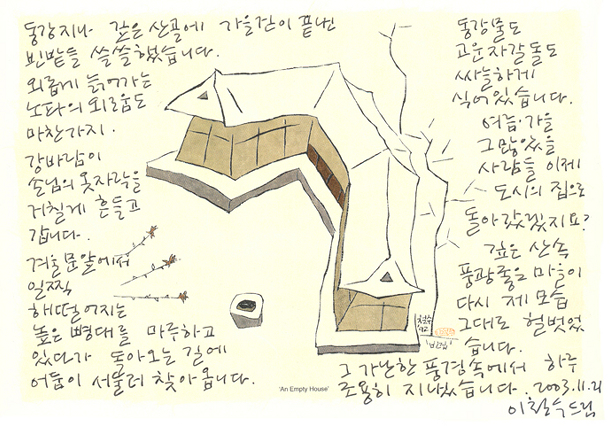 동강지나 깊은 산골에 가을걷이 끝난
빈밭들 쓸쓸했습니다.
외롭게 늙어가는
노파의 외로움도
마찬가지.
강바람이
손님의 옷자락을
거칠게 흔들고
갑니다.
겨울문앞에서
일찍
해떨어지는
높은 뼝대를 마주하고
있다가 돌아오는 길에
어둠이 서둘러 찾아옵니다.
동강물도
고운자갈돌도
싸늘하게
식어있습니다.
여름·가을
그많았을
사람들 이제
도시의 집으로
돌아갔겠지요?
깊은 산속
풍광좋은 마을이
다시 제 모습
그대로 헐벗었
습니다.
그 가난한 풍경속에서 하루
조용히 지냈습니다. 2003.11.21
이철수드림
'An Empty House'